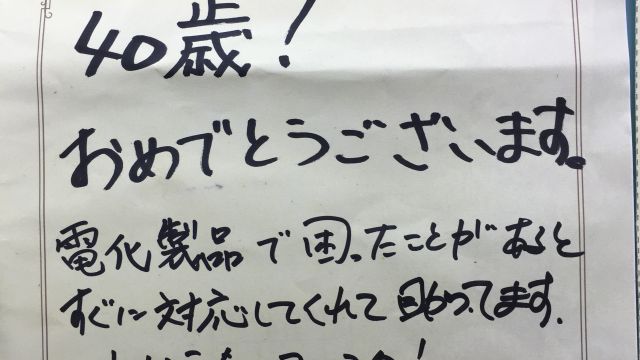 40歳!
おめでとうございます。
電化製品で困ったことがあると
すぐに対応してくれて助かってます.